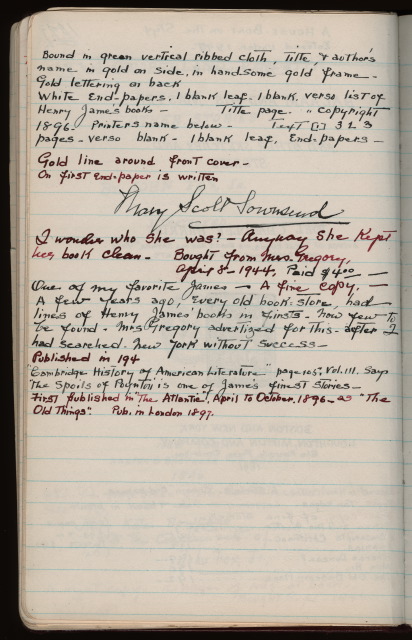 Bound in green vertical ribbed cloth, Title, & author's
name in gold on side, in handsome gold frame-
Gold lettering on back
White End-papers, 1 blank leaf. 1 blank, verso list of
Henry James's books - Title page. " Copyright
1896- Printers name below- Text [1] 323
pages- verso blank- 1 blank leaf, End-papers-
Gold line around front cover-
On first End-paper is written
Mary Scott Townsend
I wonder who she was? - Anyway she kept
her book clean. Bought from Mrs. Gregory,
April 8- 1944, Paid $4.00-
One of my favorite James - A fine copy. -
A few years ago, every old book-store, had
lines of Henry James' books in firsts- Now few to
be found- Mrs Gregory advertized for this- after I
had searched New York without success-
Published in 194
"Cambridge History of American Literature" page 105, Vol. III. Says
"The Spoils of Poynton" is one of James finest Stories-
First published in "The Atlantic", April to October, 1896- as "The
Old Things". Pub. in London 1897.